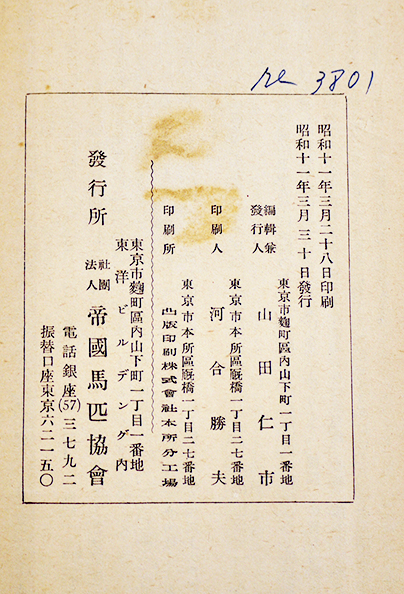 re 3801
昭和十一年三月二十八日印刷
昭和十一年三月三十日發行
東京市麴町區內山下町一丁目一番地
編輯兼
發行人
山田仁市
東京市本所區厩橋一丁目二七番地
印刷人
河合勝夫
東京市本所區厩橋一丁目二七番地
印刷所
凸版印刷株式會社本所分工場
東京市麴町區內山下町一丁目一番地
東洋ビルデング內
發行所
社團
法人
帝國馬匹協會
電話銀座(57)三七九二
振替口座東京六二一五〇